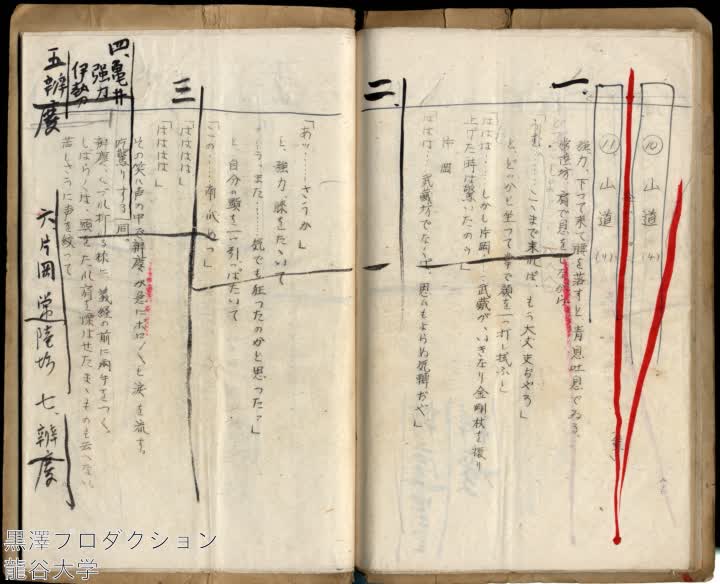 ⑩ 山道(4)
⑪ 山道(4)
一、
強力、下って来て腰を落すと、青息吐息でゐる。
常陸坊、肩で息をし
うむ……ここまで来れば、もう大丈夫ぢやろう」
と、どっかと坐って掌で顔を一つ打し拭ふ」
ははは……しかし片岡……武蔵が、いきなり金剛杖を振り
上げた時は驚いたのう」
片岡
ははは……武蔵坊でなくば、思ひもよらぬ気転ぢや」
二、
「あッ……さうか」
と、強力、膝をたゝいて
う、また……気でも狂ったのかと思ったッ」
と、自分の頭を一つ引っぱたいて
三
「ははは」
「ははははは」
その笑ひ声の中で辨慶が急にポロ〳〵と涙を流す。
吃驚りする一同。
辨慶、義経の前に両手をつく、
しばらくは、頭をたれ肩を震はせたまゝものも云へない
苦しさうに声を絞って
四、亀井
強力
伊勢
五、辨慶
六、片岡 常陸坊
七、辨慶
黒澤プロダクション
龍谷大学